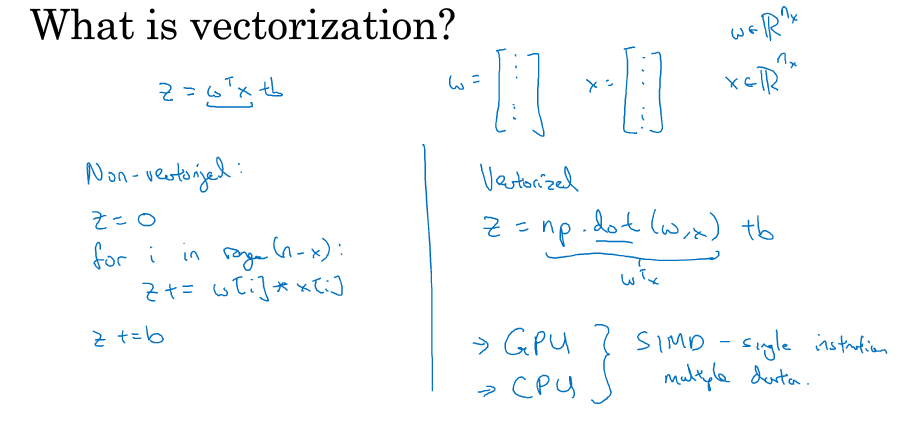 What is vectorization?
z = wᵀx + b
w = [⋮ ⋮] x = [⋮ ⋮]
w ∈ ℝⁿˣ
x ∈ ℝⁿˣ
Non-vectorized:
z = 0
for i in range(n-x):
z += w[i] * x[i]
z += b
Vectorized
z = np.dot(w,x) + b
wᵀx
→ GPU
→ CPU
} SIMD - single instruction
multiple data.